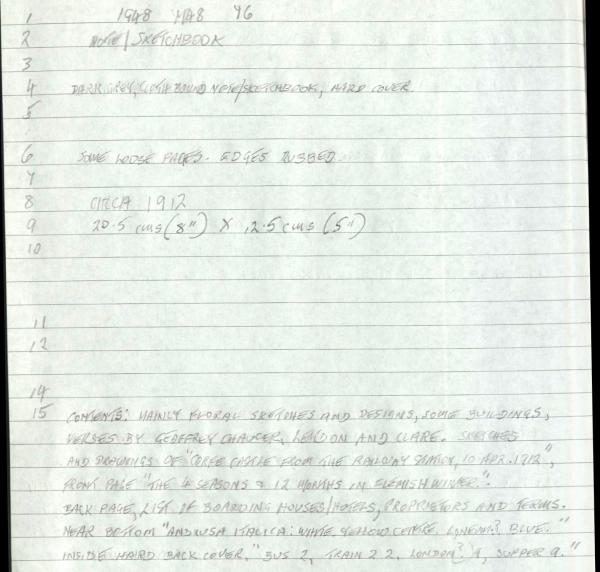 1 1948 MA8 96
2 NOTE/SKETCHBOOK
3
4 DARK GREY, CLOTH BOUND NOTE/SKETCHBOOK, HARD COVER.
5
6 SOME LOOSE PAGES. EDGES RUBBED.
7
8 CIRCA 1912
9 20.5 cms (8") X 12.5 cms (5")
10
11
12
14
15 CONTENTS: MAINLY FLORAL SKETCHES AND DESIGNS, SOME BUILDINGS,
VERSES BY GEOFFREY CHAUCER, LONDON AND CLARE. SKETCHES
AND DRAWINGS OF "CORFE CASTLE FROM THE RAILWAY STATION, 10 APR. 1912",
FRONT PAGE "THE 4 SEASONS & 12 MONTHS IN FLEMISH WINTER".
BACK PAGE, LIST OF BOARDING HOUSES/HOTELS, PROPRIETORS AND TERMS.
NEAR BOTTOM "ITALICA: WHITE, YELLOW CENTRE. BLUE."
INSIDE HARD BACK COVER, "BUS 2, TRAIN 2 2, LONDON? 9, SUPPER 9."